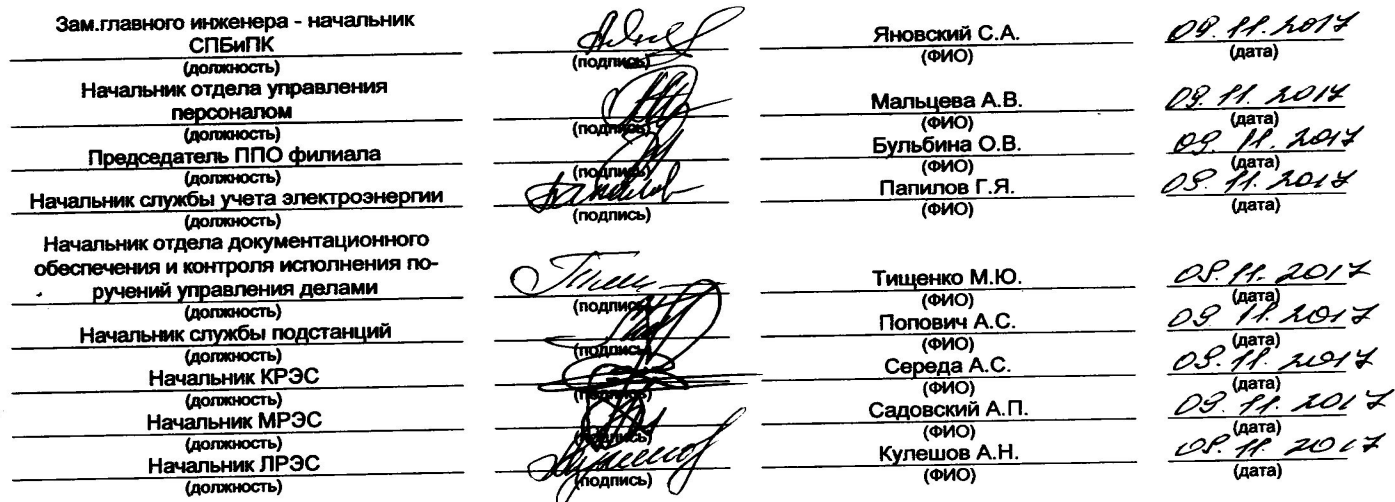 Зам.главного инженера - начальник
СПБиПК Яновский С.А. 09.11.2017
(должность) (подпись) (ФИО) (дата)
Начальник отдела управления
персоналом Мальцева А.В. 09.11.2017
(должность) (подпись) (ФИО) (дата)
Председатель ППО филиала Бульбина О.В. 09.11.2017
(должность) (подпись) (ФИО) (дата)
Начальник службы учета электроэнергии Папилов Папилов Г.Я. 09.11.2017
(должность) (подпись) (ФИО) (дата)
Начальник отдела документационного
обеспечения и контроля исполнения по-
ручений управления делами Тищенко М.Ю. 09.11.2017
(должность) (подпись) (ФИО) (дата)
Начальник службы подстанций Попович А.С. 09.11.2017
(должность) (подпись) (ФИО) (дата)
Начальник КРЭС Середа А.С. 09.11.2017
(должность) (подпись) (ФИО) (дата)
Начальник МРЭС Садовский А.П. 09.11.2017
(должность) (ФИО) (дата)
Начальник ЛРЭС Кулешов Кулешов А.Н. 09.11.2017
(должность) (подпись) (ФИО) (дата)